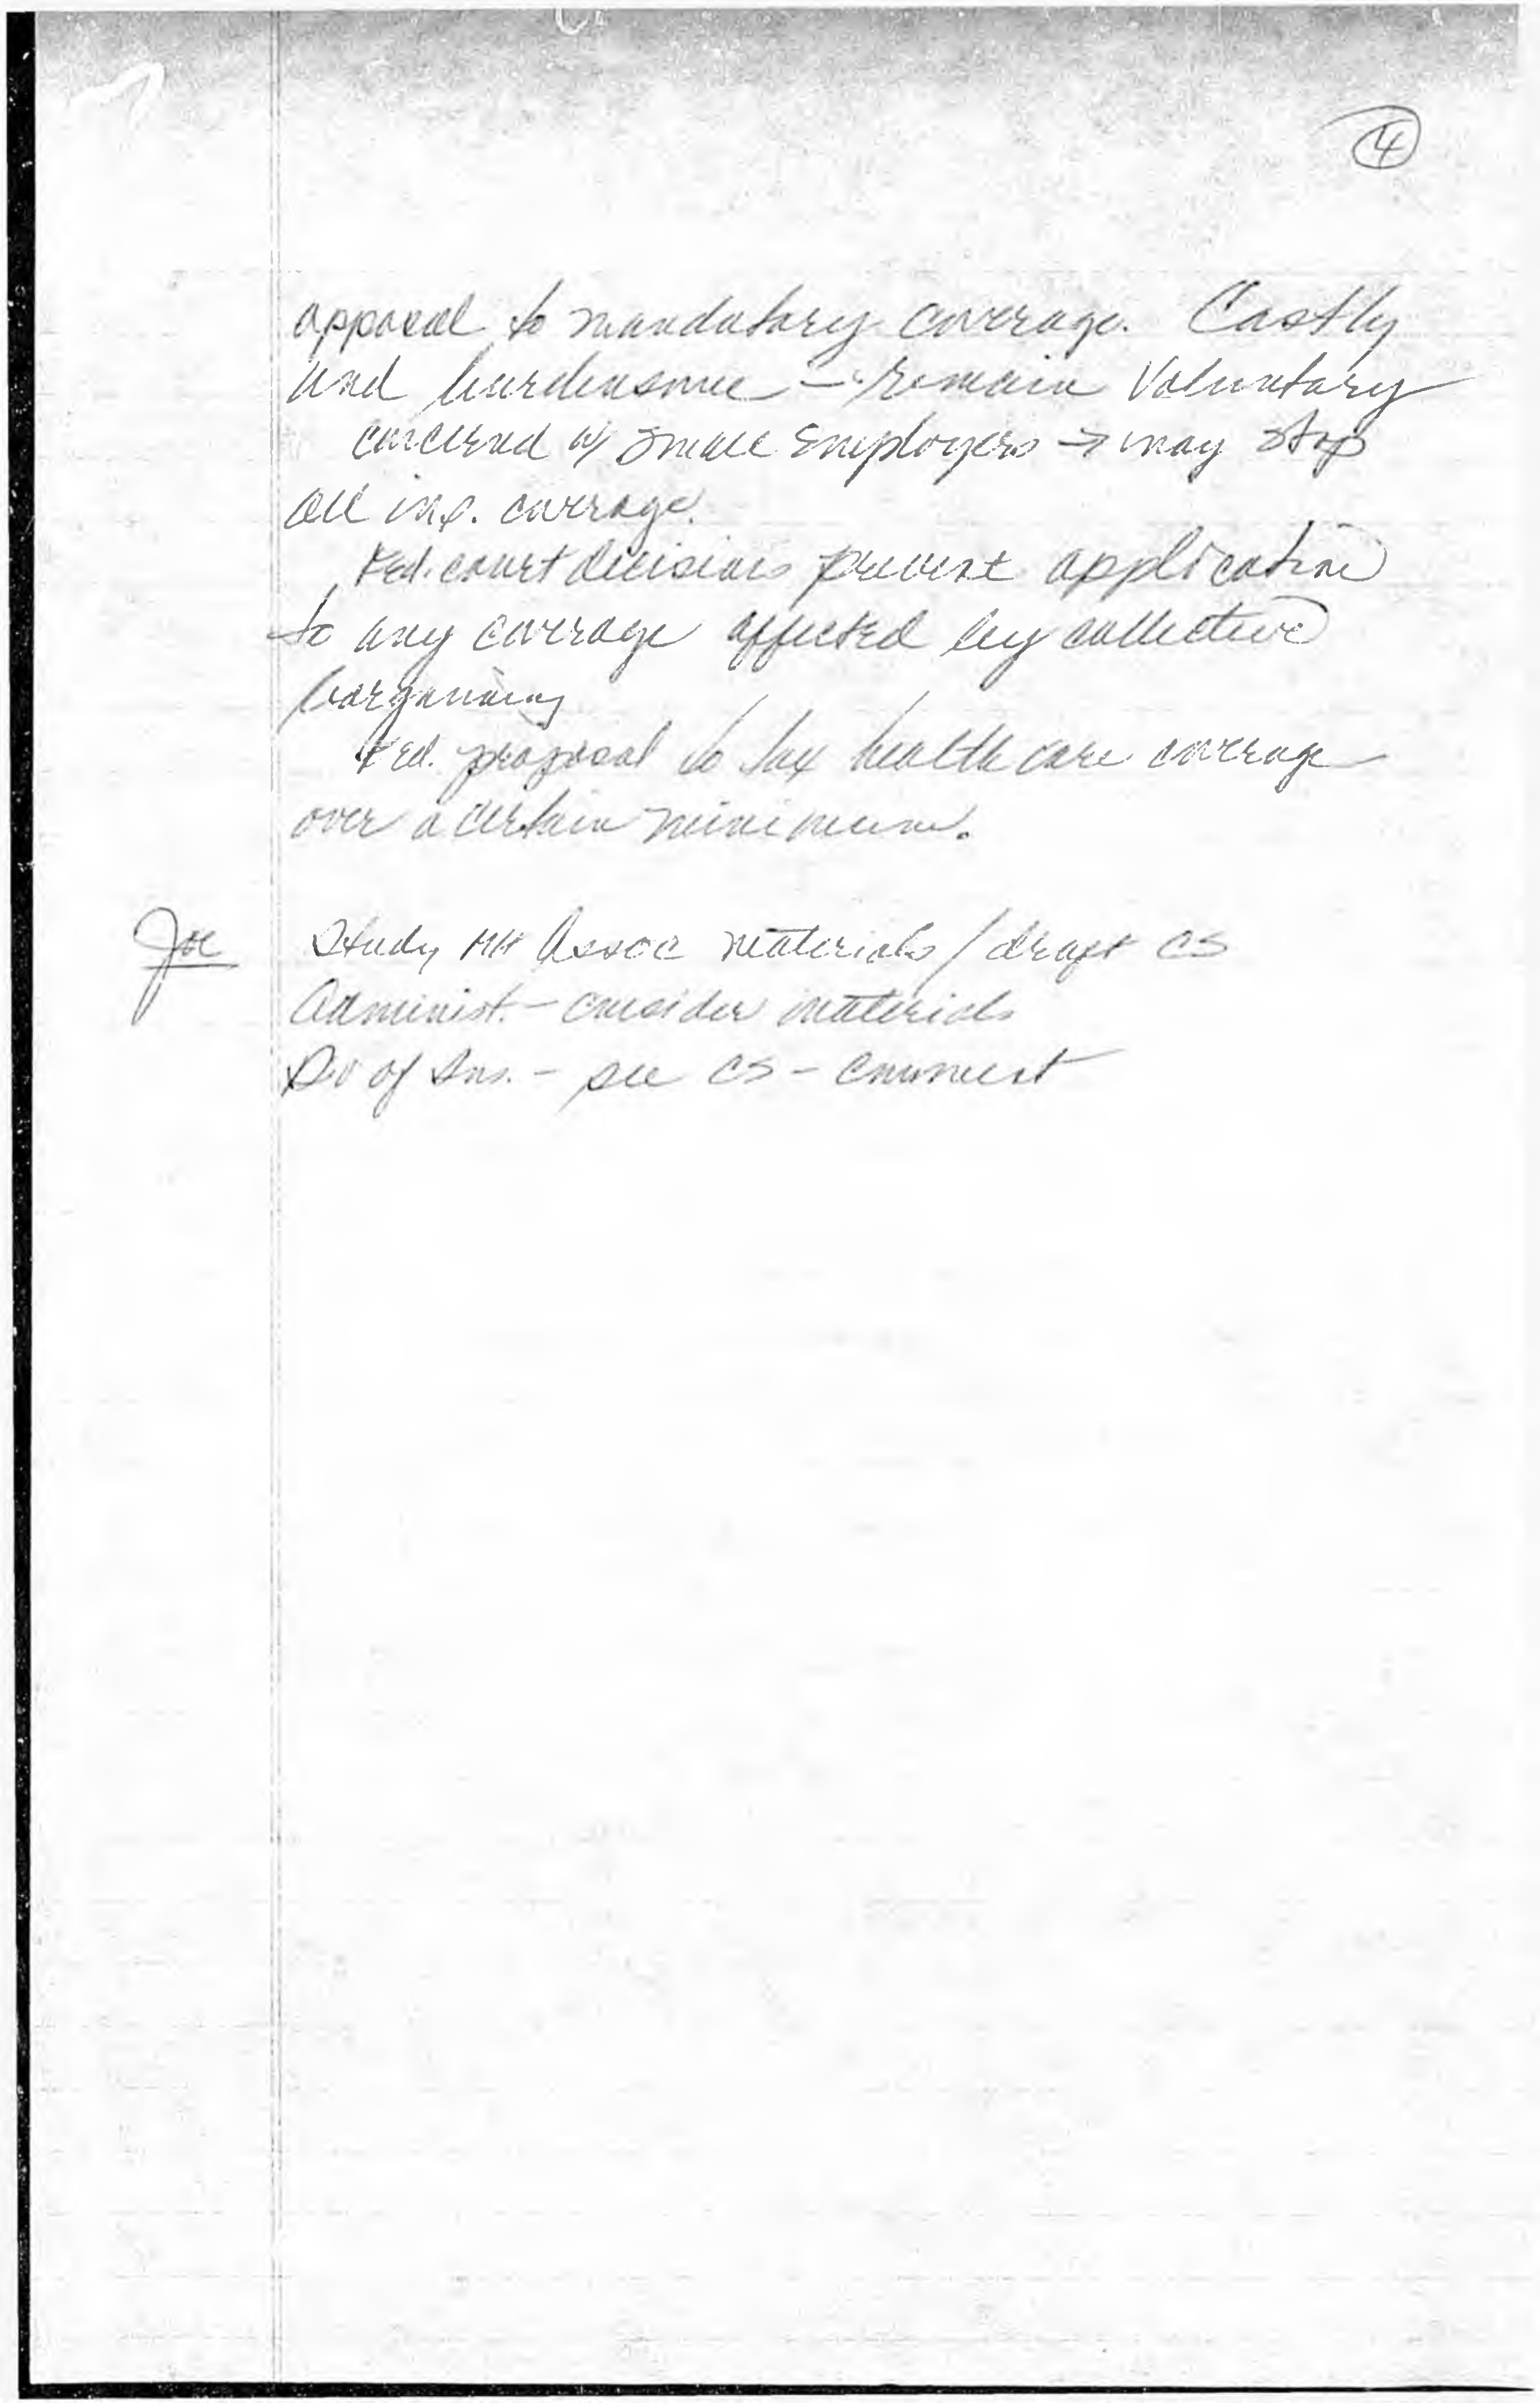 4
opposed to mandatory coverage. Costly
and burdensome - remain voluntary
concerned w/ small employers → may stop
all ins. coverage.
Fed. court decisions prevent application
to any coverage affected by collective
bargaining
Fed. proposal to tax health care coverage
over a certain minimum.
Joe Study MH Assoc materials / draft CS
Administ. - consider materials
Div of Ins. - see CS - comment